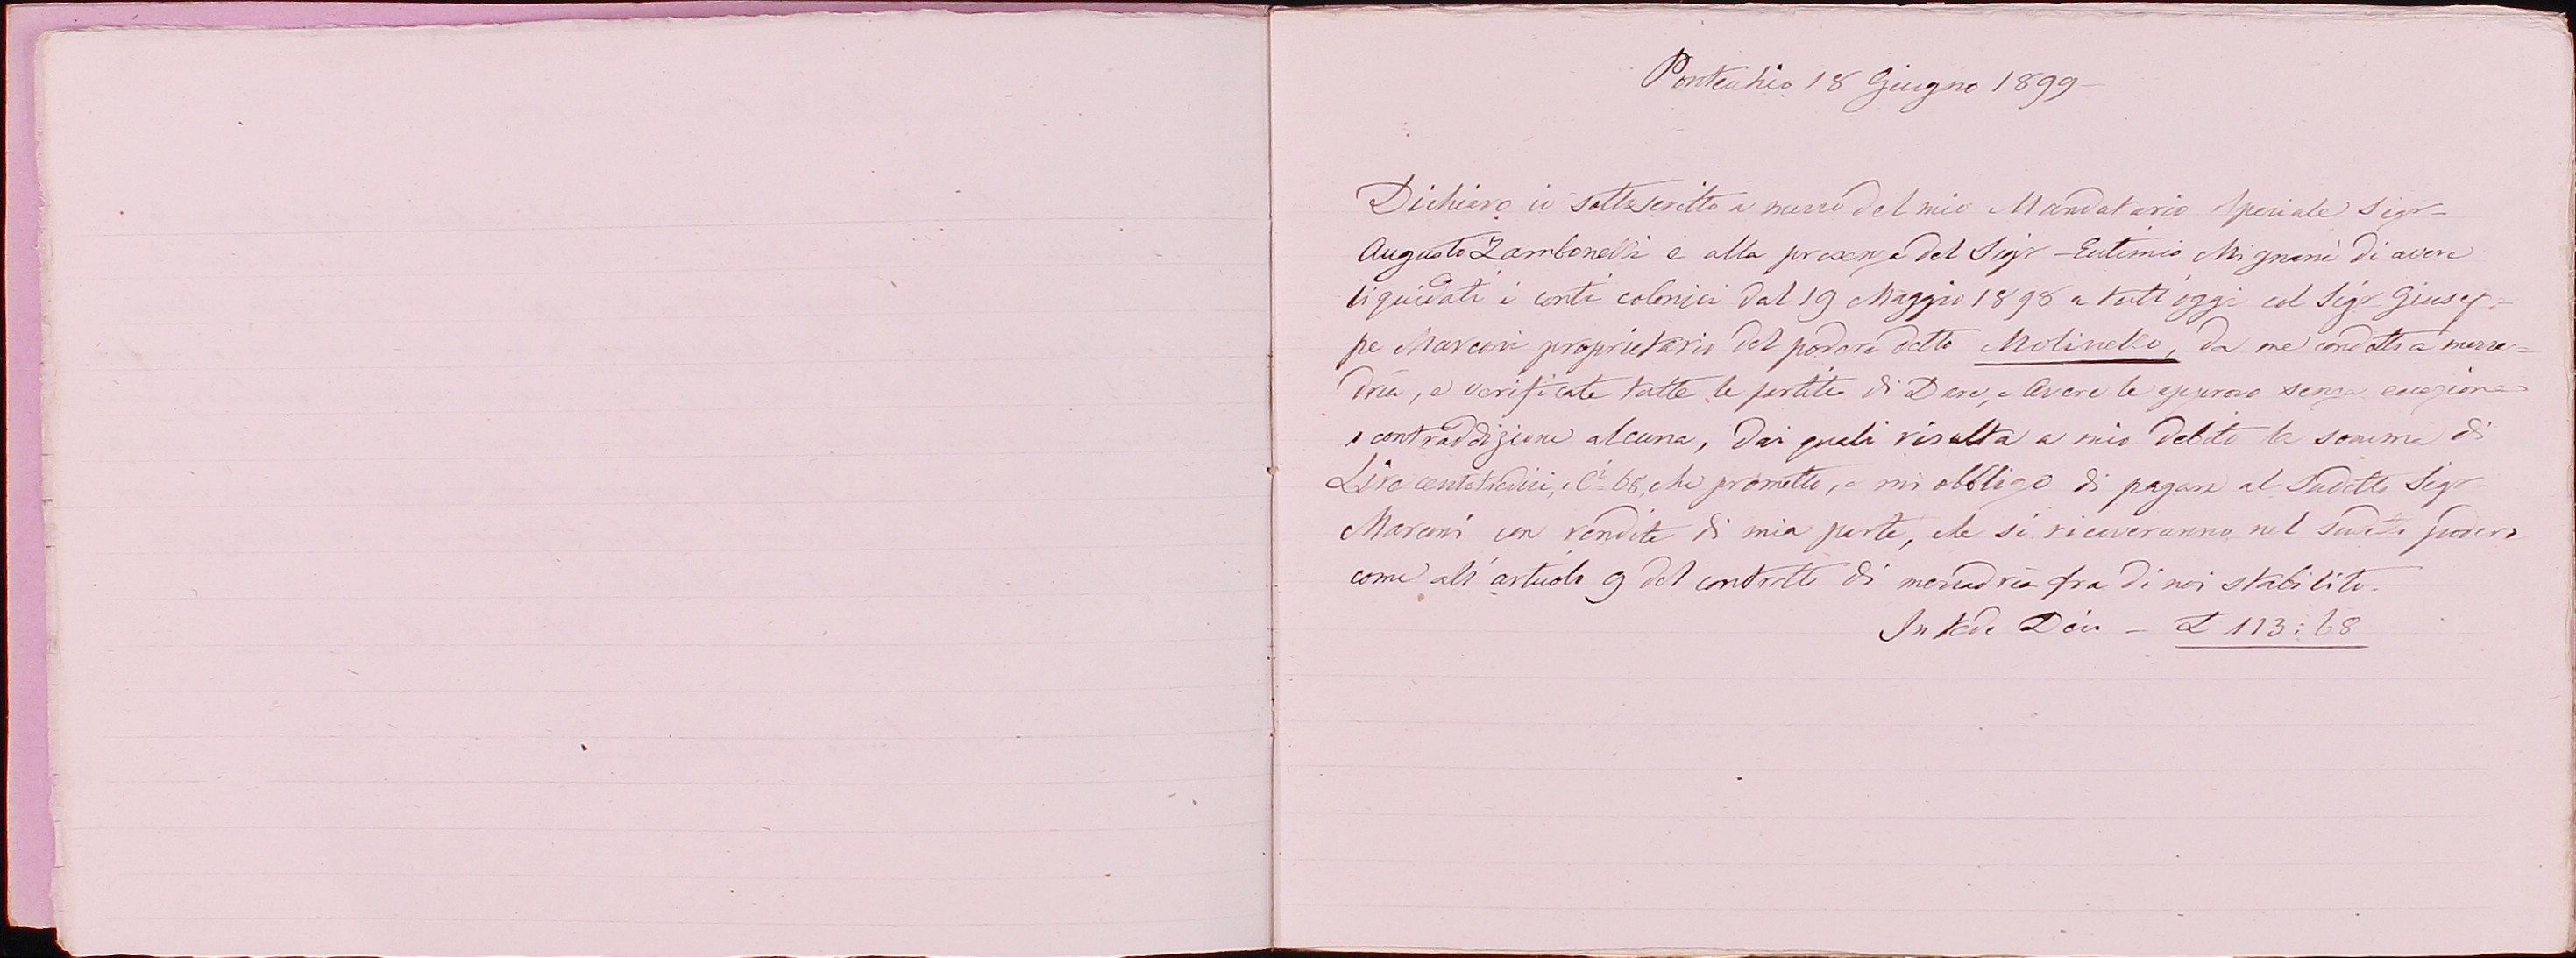 Pontecchio 18 Giugno 1899 -
Dichiaro io sottoscritto a mezzo del mio Mandatario Speciale Sigr -
Augusto Zambonelli e alla presenza del Sigr - Eutimio Mignani di avere
liquidati i conti colonici dal 19 Maggio 1898 a tutt'oggi col Sigr Giusep=
pe Marconi proprietario del podere detto Molinello, da me condotto a mezza=
dria, e verificate tutte le partite di Dare, e Avere le approvo senza eccezione
e contraddizione alcuna, dai quali risulta a mio debito la somma di
Lire centotredici, Ci 68, che prometto, e mi obbligo di pagare al sudetto Sigr
Marconi con rendite di mia parte, che si ricaveranno nel sudetto podere
come all'articolo 9 del contratto di mezzadria fra di noi stabilito.
In fede Dico - L 113:68